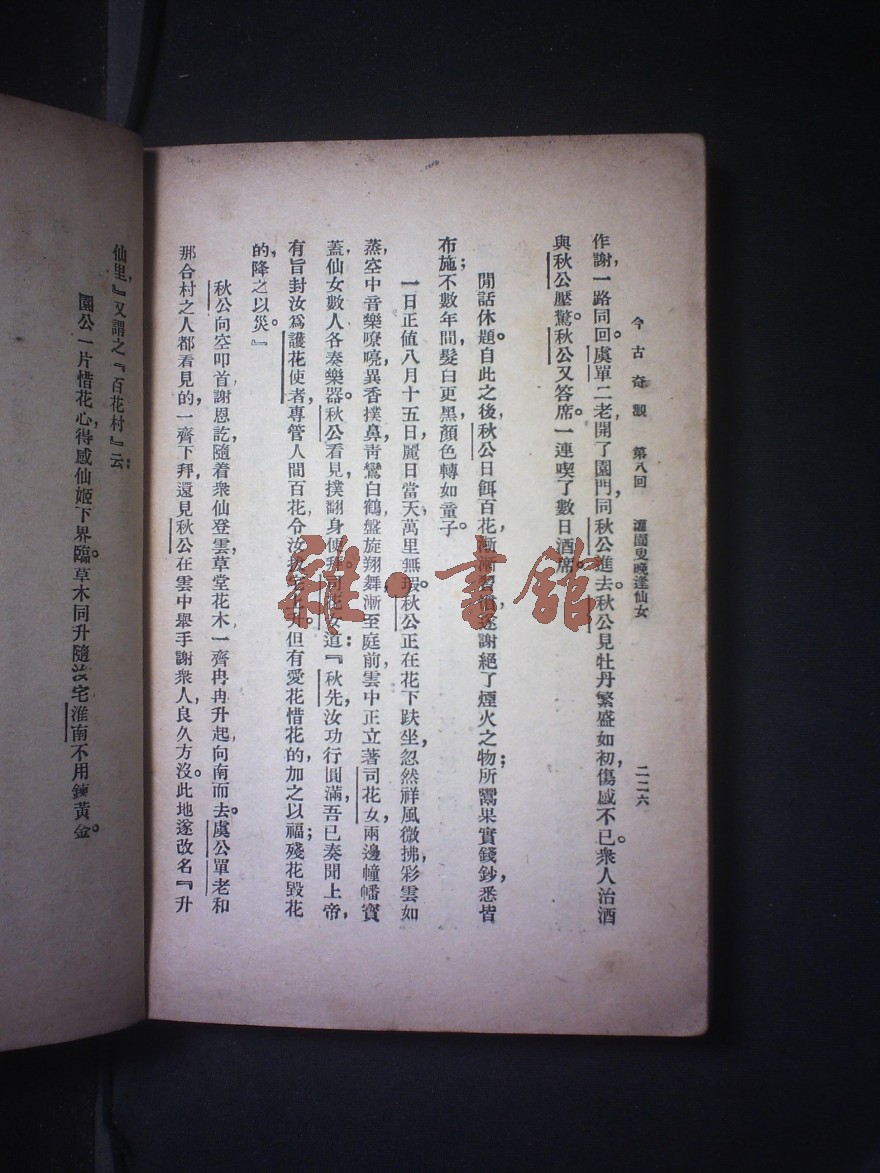 今古奇觀　第八回　灌園叟晚逢仙女　二二六
作謝，一路同回。虞單二老開了園門，同秋公進去。秋公見牡丹繁盛如初，傷感不已。衆人治酒
與秋公壓驚。秋公又答席。一連喫了數日酒席。
閒話休題。自此之後，秋公日餌百花，漸漸習慣，遂謝絕了煙火之物；所鬻果實錢鈔，悉皆
布施；不數年間，髮白更黑，顏色轉如童子。
一日正值八月十五日，麗日當天，萬里無瑕。秋公正在花下趺坐，忽然祥風微拂，彩雲如
蒸，空中音樂嘹喨，異香撲鼻，靑鸞白鶴，盤旋翔舞，漸至庭前。雲中正立著司花女，兩邊幢幡寳
蓋，仙女數人，各奏樂器。秋公看見，撲翻身便拜。司花女道：『秋先，汝功行圓滿，吾已奏聞上帝，
有旨封汝爲護花使者，專管人間百花，令汝拔宅上升。但有愛花惜花的，加之以福；殘花毀花
的，降之以災。』
秋公向空叩首謝恩訖，隨着衆仙登雲，草堂花木，一齊冉冉升起，向南而去。虞公單老和
那合村之人都看見的，一齊下拜，還見秋公在雲中舉手謝衆人，良久方沒。此地遂改名『升
仙里，』又謂之『百花村』云：
園公一片惜花心，得感仙姬下界臨。草木同升隨汝宅，淮南不用鍊黃金。
雜·書館